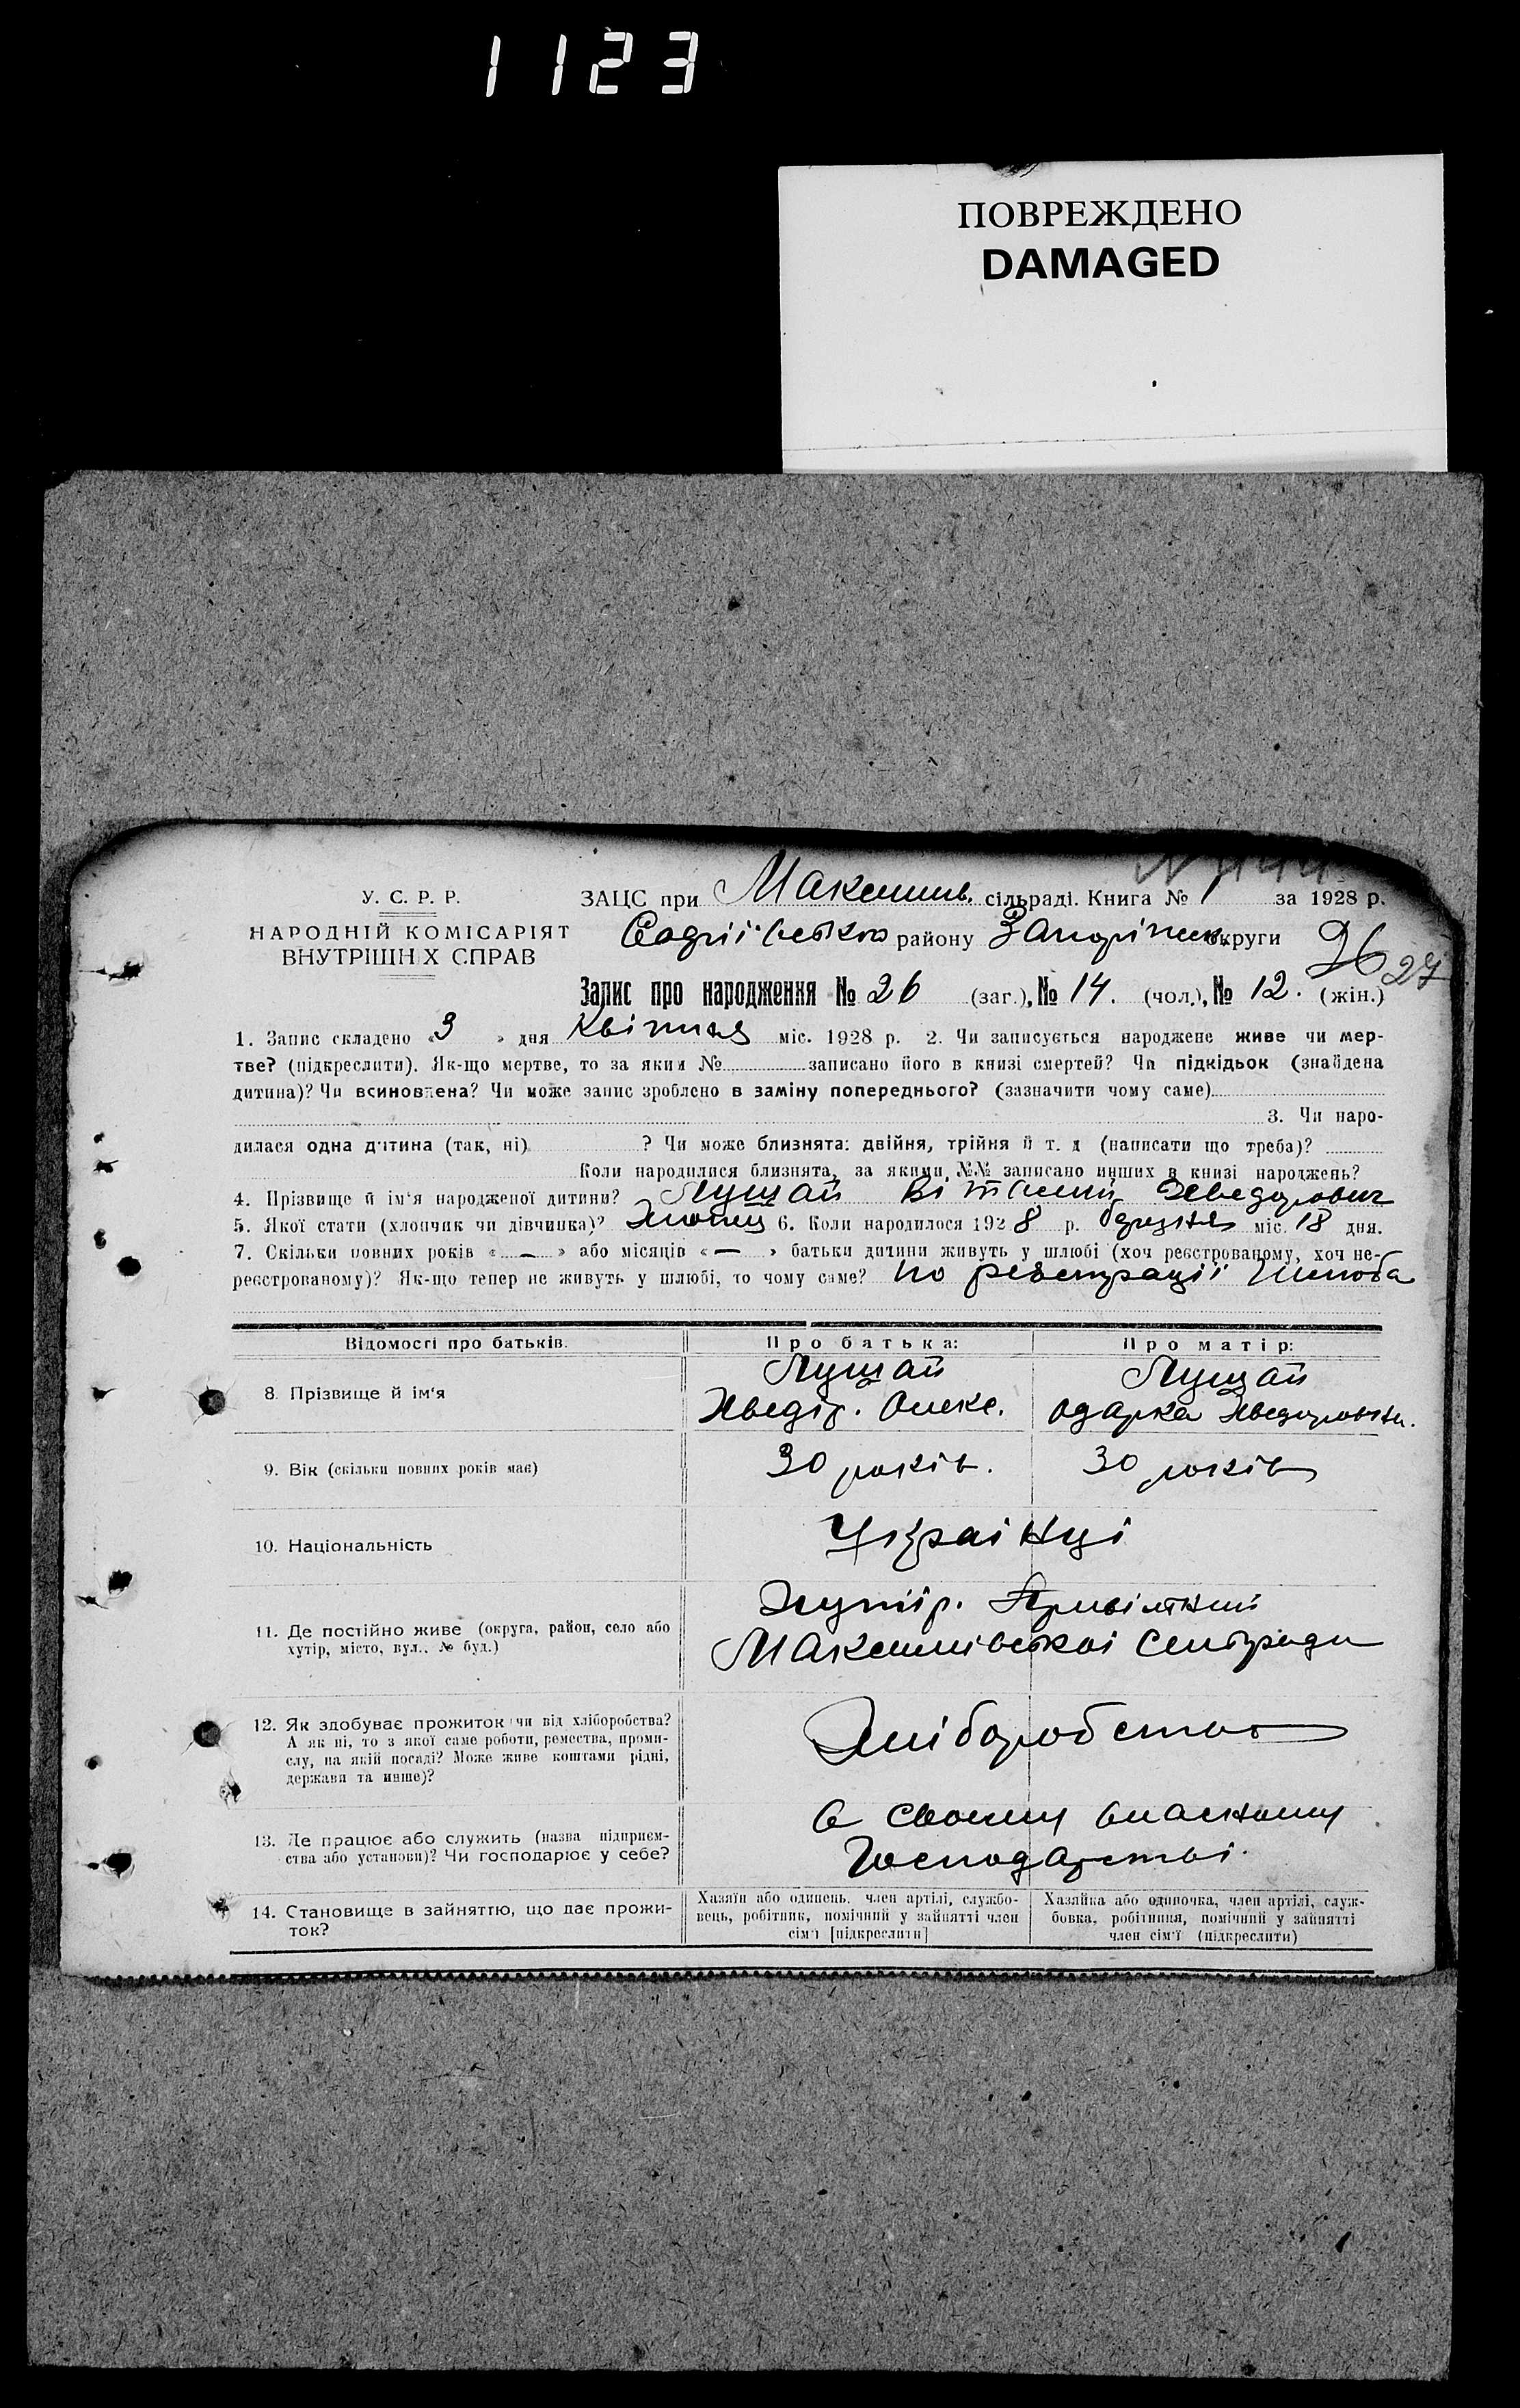 1123
ПОВРЕЖДЕНО
DAMAGED
У. С. Р. Р.
НАРОДНІЙ КОМІСАРІЯТ
ВНУТРІШНІХ СПРАВ
ЗАЦС при Максимів. сільраді. Книга № 1 за 1928 р.
району Запоріжськ. округи
26 27
Запис про народження № 26 (заг.), № 14. (чол.), № 12. (жін.)
1. Запис складено « 3 » дня Квітня міс. 1928 р. 2. Чи записується народжене живе чи мер-
тве? (підкреслити). Як-що мертве, то за яким № записано його в книзі смертей? Чи підкідьок (знайдена
дитина)? Чи всиновлена? Чи може запис зроблено в заміну попереднього? (зазначити чому саме)
3. Чи наро-
дилася одна дитина (так, ні) ? Чи може близнята: двійня, трійня й т. д (написати що треба)?
Коли народилися близнята, за якими №№ записано инших в книзі народжень?
4. Прізвище й ім'я народженої дитини? Лущай Віталий Хведорович
5. Якої стати (хлопчик чи дівчинка)? Хлопец 6. Коли народилося 1928 р. березня міс. 18 дня.
7. Скільки повних років « — » або місяців « — » батьки дитини живуть у шлюбі (хоч реєстрованому, хоч не-
реєстрованому)? Як-що тепер не живуть у шлюбі, то чому саме? по регистрації шлюба
Відомості про батьків.
Про батька:
Про матір:
8. Прізвище й ім'я
Лущай
Хведір. Олекс.
Лущай
Одарка Хведоровна.
9. Вік (скільки повних років має)
30 років.
30 років
10. Національність
Українці
11. Де постійно живе (округа, район, село або
хутір, місто, вул., № буд.)
Хутір. Привітний
Максимівської Сельради
12. Як здобуває прожиток чи від хліборобства?
А як ні, то з якої саме роботи, ремества, проми-
слу, на якій посаді? Може живе коштами рідні,
держави та инше)?
Хліборобство
13. Де працює або служить (назва підприєм-
ства або установи)? Чи господарює у себе?
в своєму власному
Господарстві.
14. Становище в зайняттю, що дає прожи-
ток?
Хазяїн або одинець, член артілі, службо-
вець, робітник, помічний у зайнятті член
сім'ї [підкреслити]
Хазяйка або одиночка, член артілі, служ-
бовка, робітниця, помічний у зайнятті
член сім'ї (підкреслити)